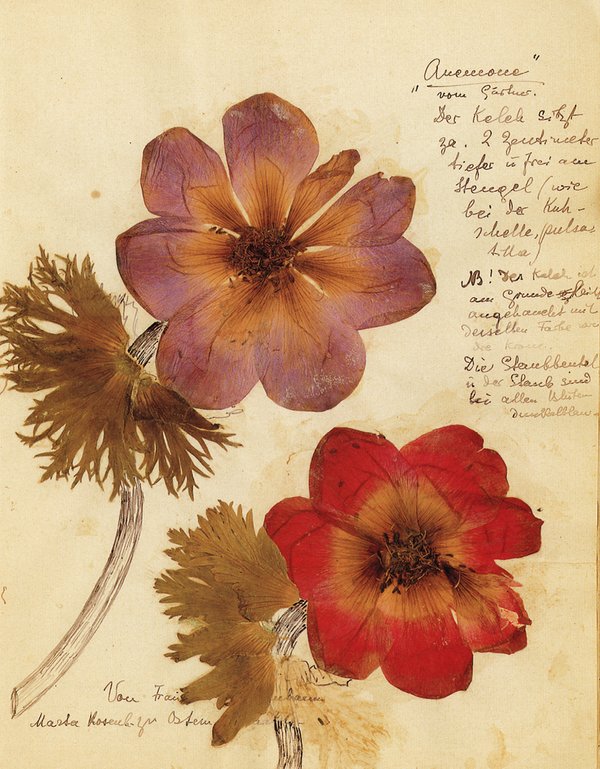 "Anemone"
vom Gärtner.
Der Kelch sitzt
za. 2 Zentimeter
tiefer u frei am
Stengel (wie
bei der Kuh-
schelle, pulsa-
tilla)
NB! Der Kelch ist
am Grunde
angehaucht mit
derselben Farbe wie
die
Die Staubbeutel
u der Staub sind
bei allen Blüten
dunkelblau.
Von Frau
Marta Rosenb zu Ostern